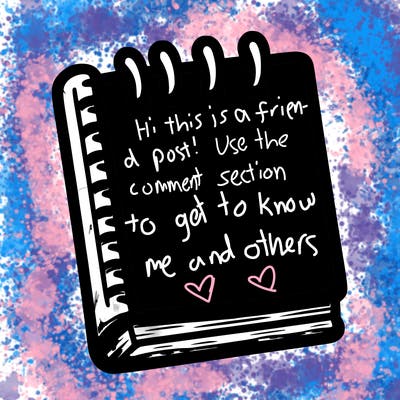 Hi this is a frien-
d post! Use the
comment section
to get to know
me and others